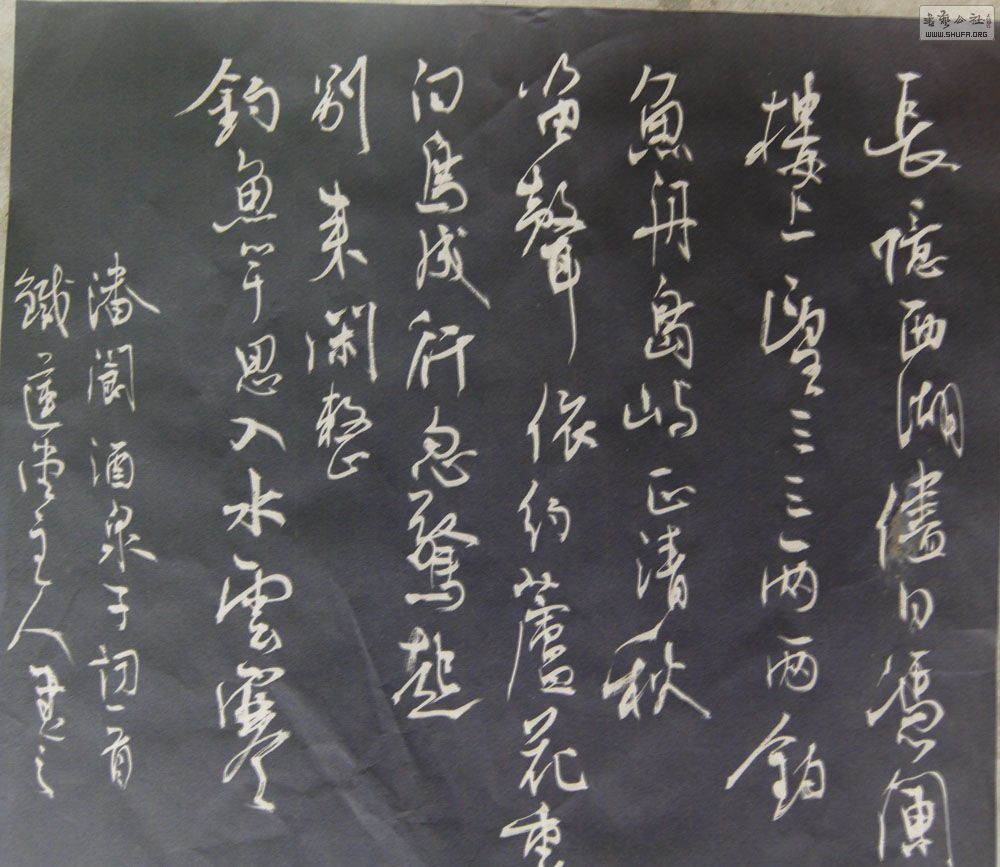 長憶西湖儘日憑闌
樓上望三三兩兩釣
魚舟島嶼正清秋
笛聲依約蘆花裏
白鳥成行忽驚起
別來閑整
釣魚竿思入水雲寒
潘閬酒泉子詞一首
鐵蓮堂主人書之
書藝公社
WWW.SHUFA.ORG